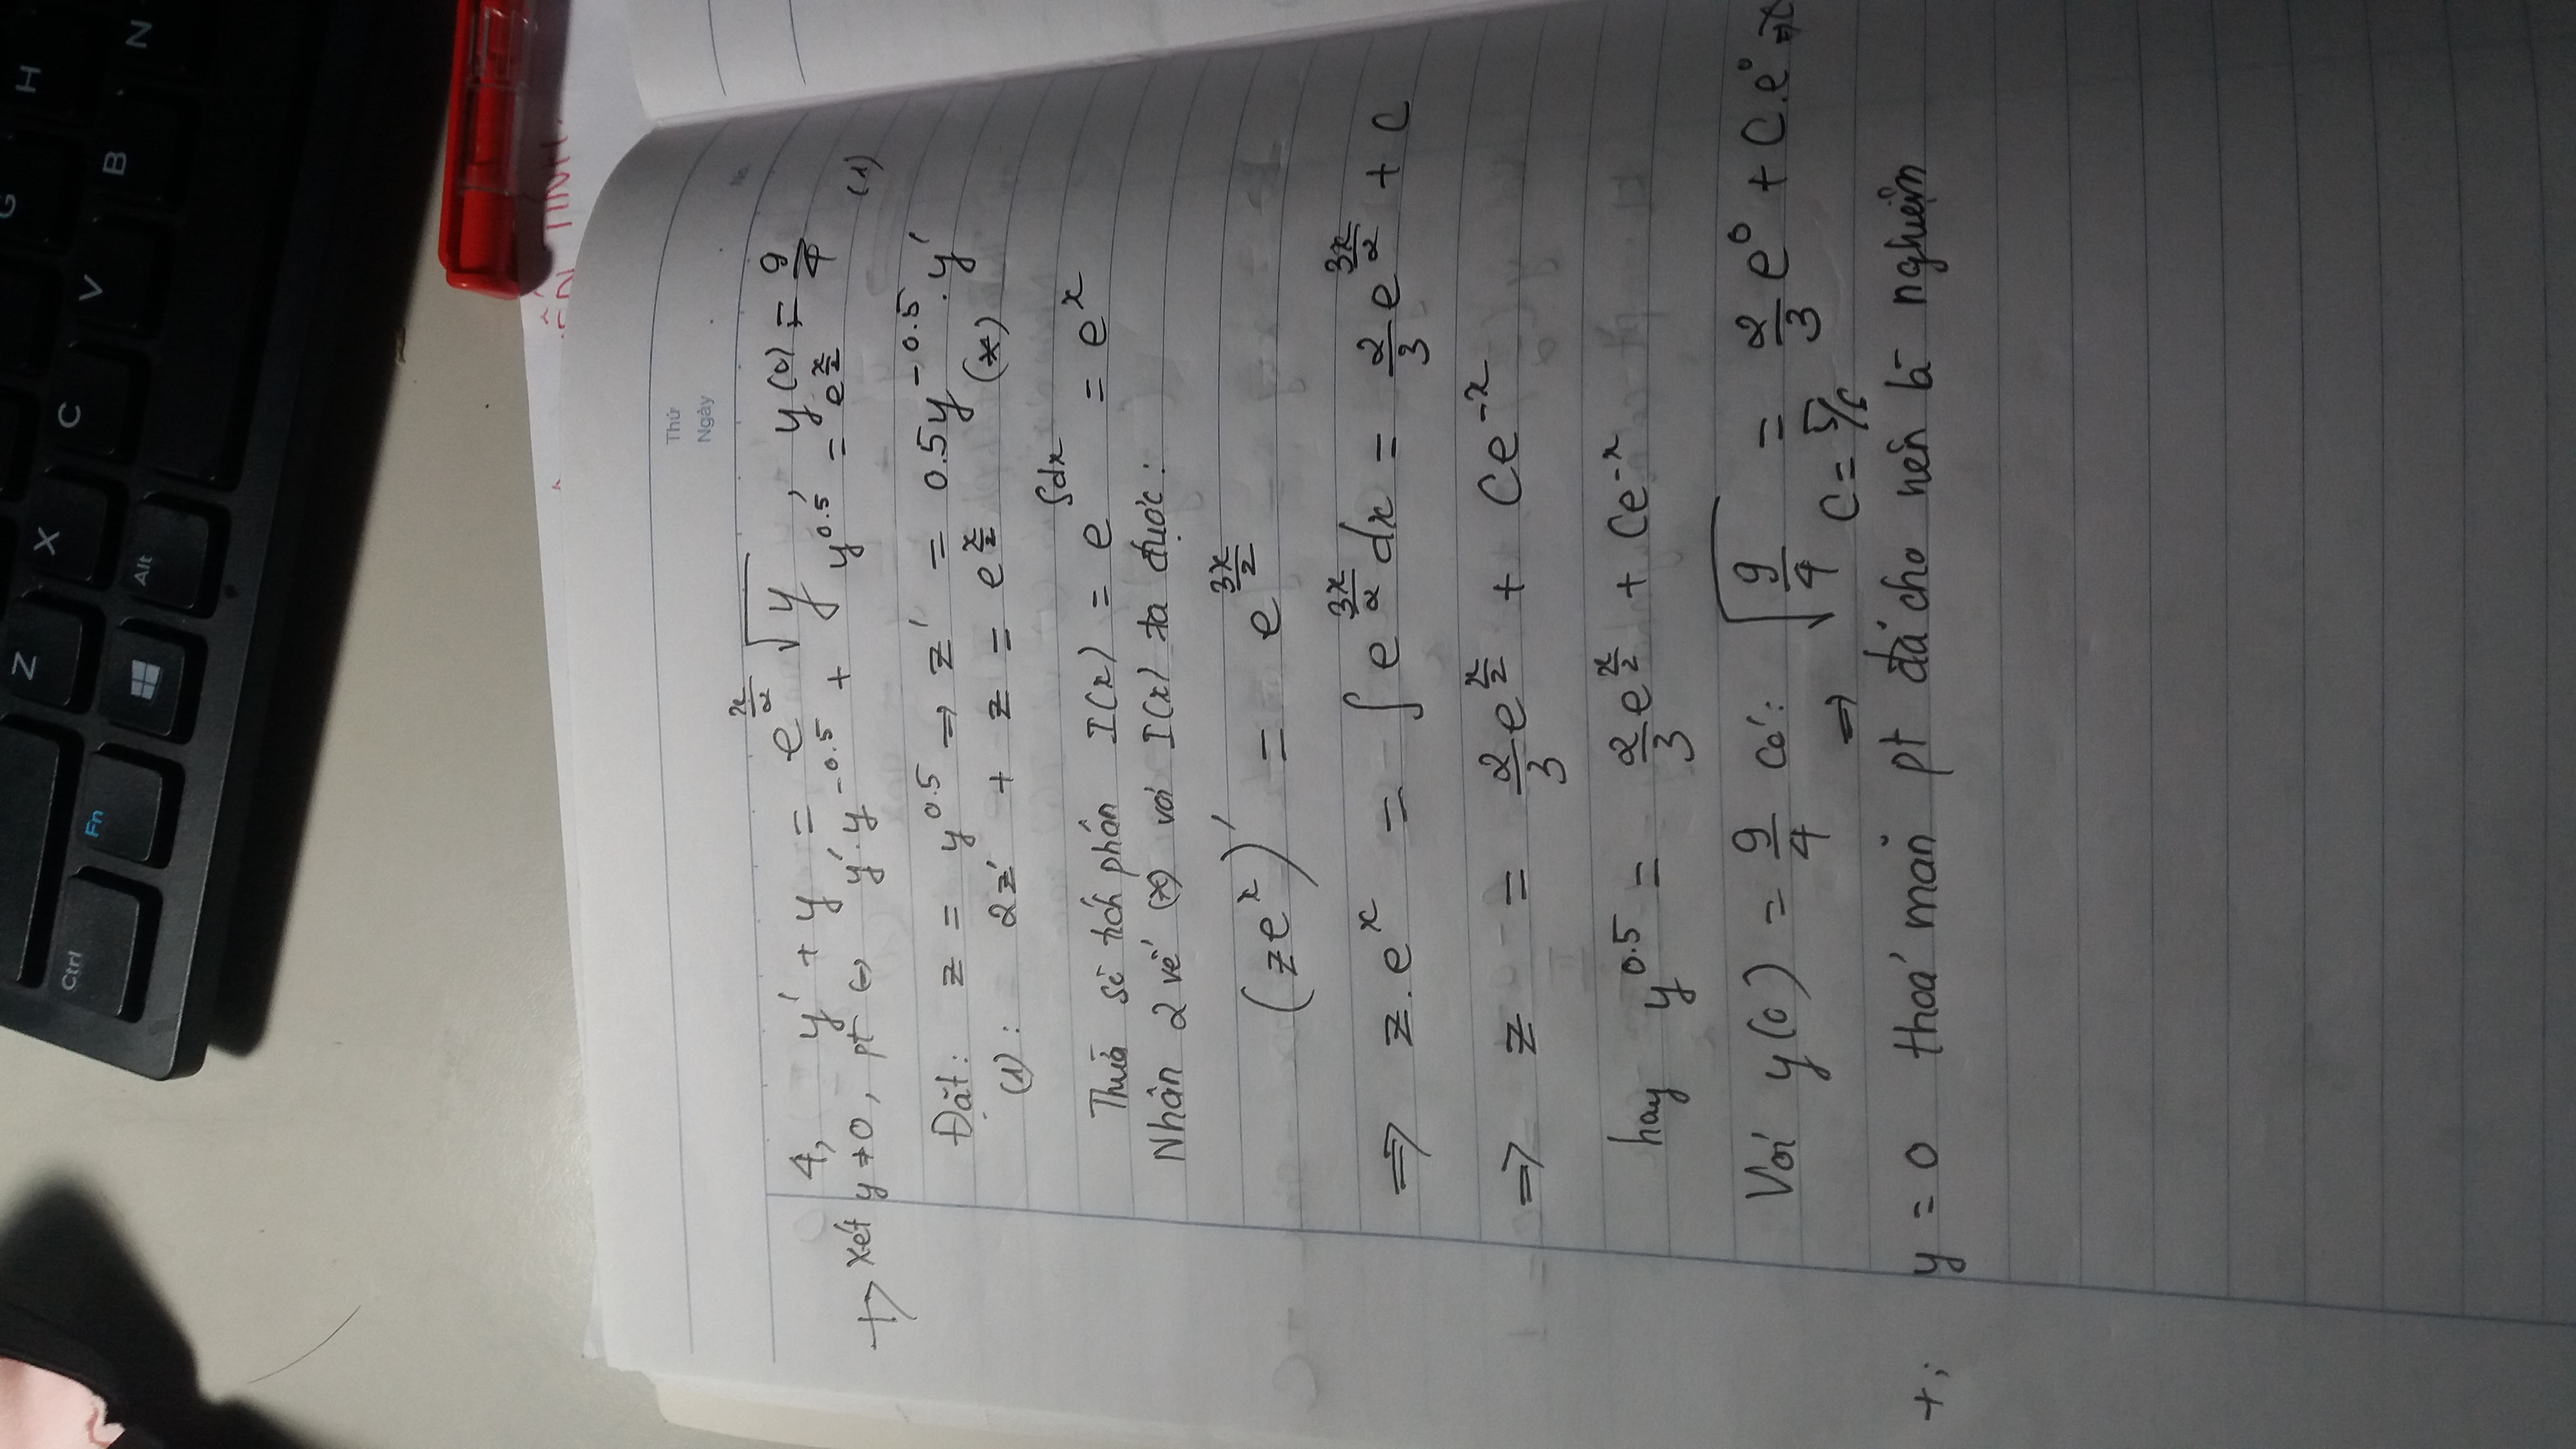 G H
Z X C V B N
Ctrl Fn Alt
ẾN TÍNH
Thứ
Ngày
No.
4, y' + y = e^{x/2} √y , y(0) = 9/4
+> Xét y ≠ 0, pt ⇔ y'.y^{-0.5} + y^{0.5} = e^{x/2} (1)
Đặt: z = y^{0.5} ⇒ z' = 0.5y^{-0.5}.y'
(1): 2z' + z = e^{x/2} (*)
Thừa số tích phân I(x) = e^{∫dx} = e^x
Nhân 2 vế (*) với I(x) ta được:
(ze^x)' = e^{3x/2}
⇒ z.e^x = ∫ e^{3x/2} dx = 2/3 e^{3x/2} + C
⇒ z = 2/3 e^{x/2} + Ce^{-x}
hay y^{0.5} = 2/3 e^{x/2} + Ce^{-x}
Với y(0) = 9/4 có: √(9/4) = 2/3 e^0 + C.e^0 ⇒
⇒ C = 5/6
+; y = 0 thoả mãn pt đã cho nên là nghiệm